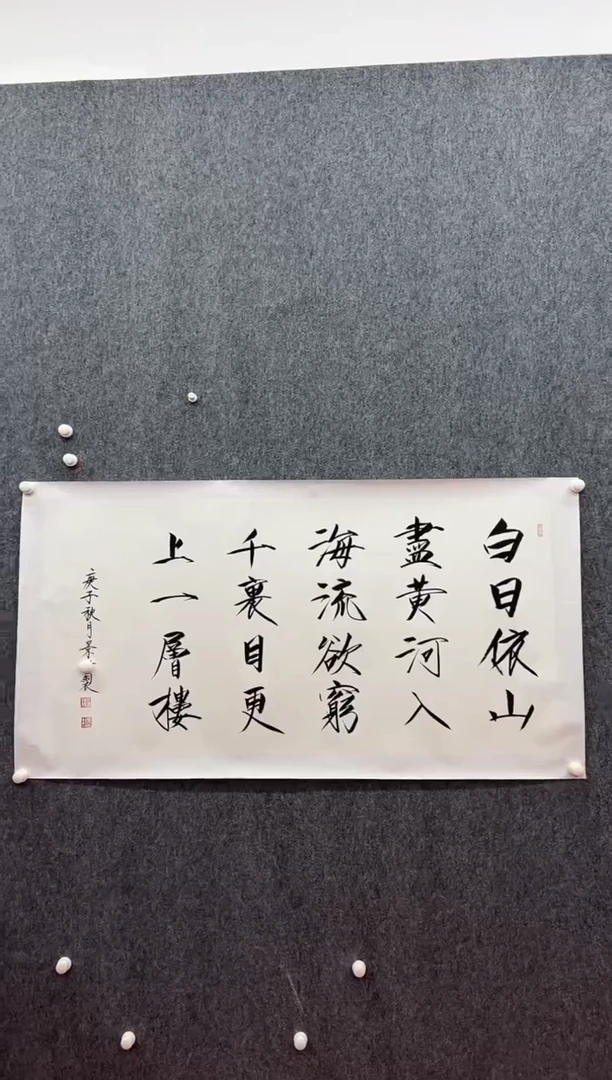 白日依山
盡黄河入
海流欲窮
千裏目更
上一層樓
庚子秋月景製